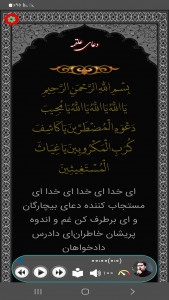 دعای علقمه
بِسْمِ اللَّهِ الرَّحْمنِ الرَّحِيمِ
يَا اللَّهُ يَا اللَّهُ يَا اللَّهُ يَا مُجِيبَ
دَعْوَةِ الْمُضْطَرِّينَ يَا كَاشِفَ
كُرَبِ الْمَكْرُوبِينَ يَا غِيَاثَ
الْمُسْتَغِيثِينَ
ای خدا ای خدا ای خدا ای
مستجاب کننده دعای بیچارگان
و ای برطرف کن غم و اندوه
پریشان خاطران‌ای دادرس
دادخواهان